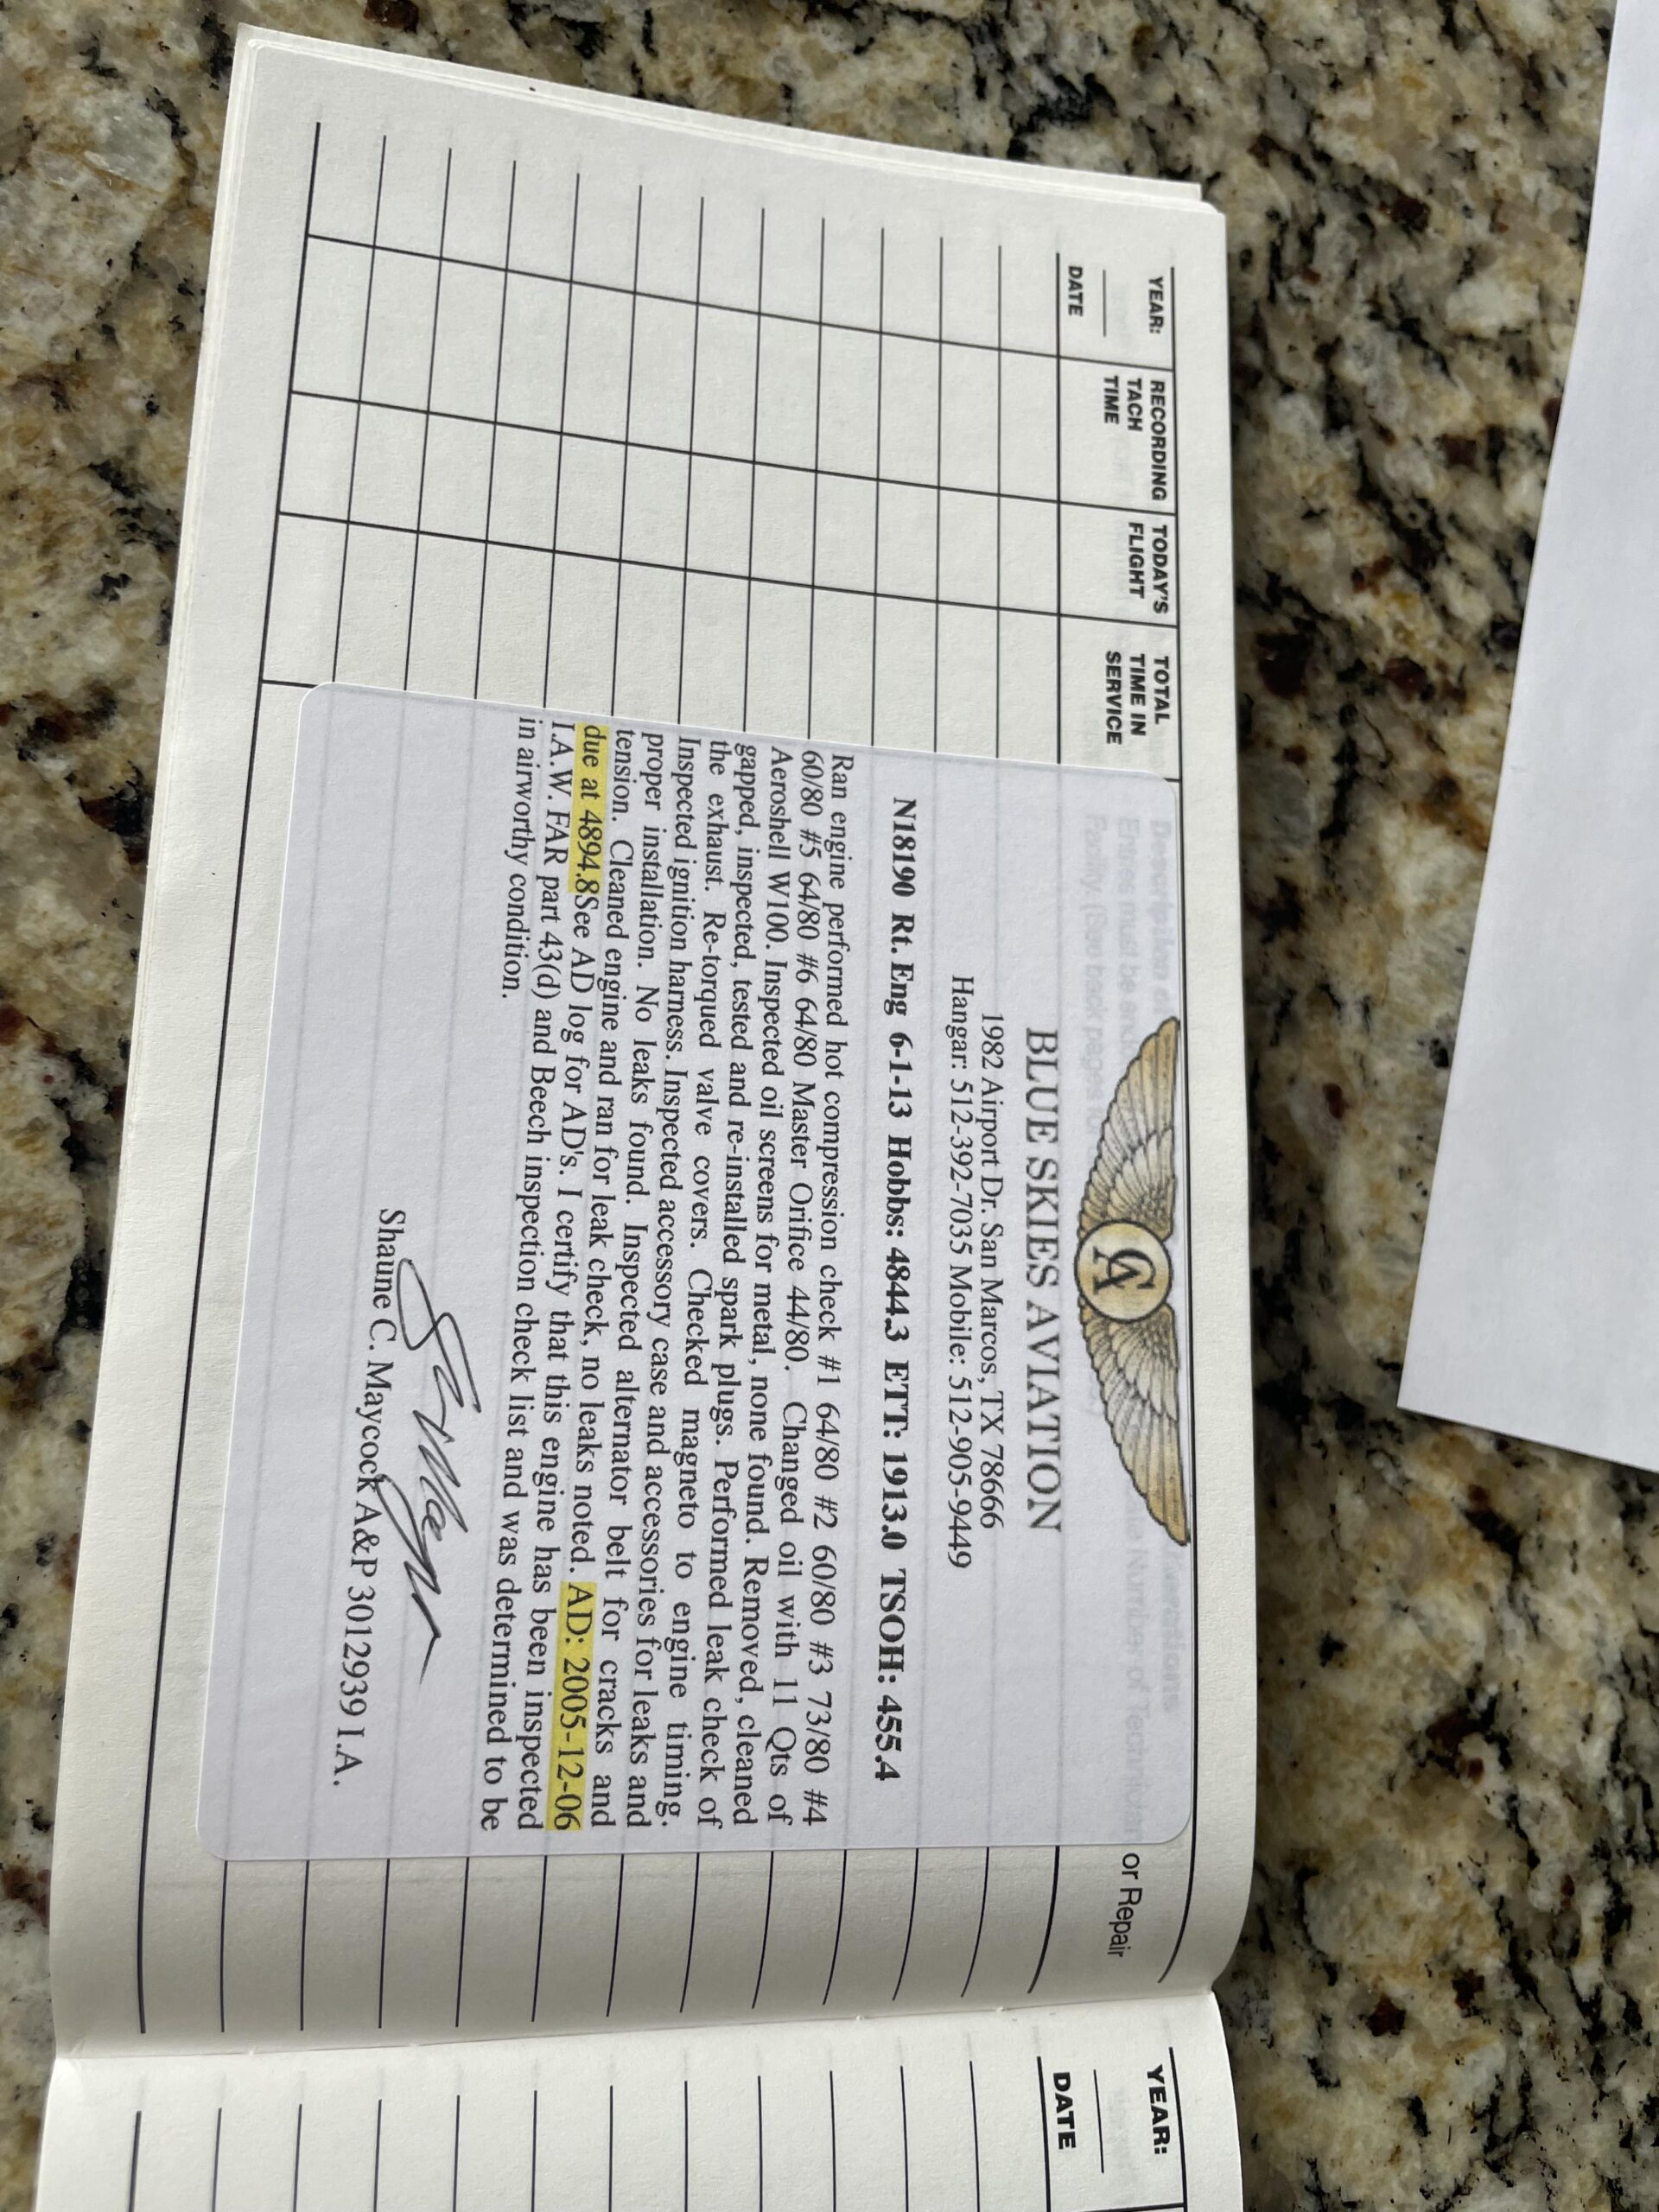 YEAR:
DATE
RECORDING
TACH
TIME
TODAY'S
FLIGHT
TOTAL
TIME IN
SERVICE
or Repair
CA
BLUE SKIES AVIATION
1982 Airport Dr. San Marcos, TX 78666
Hangar: 512-392-7035 Mobile: 512-905-9449
N18190 Rt. Eng 6-1-13 Hobbs: 4844.3 ETT: 1913.0 TSOH: 455.4
Ran engine performed hot compression check #1 64/80 #2 60/80 #3 73/80 #4
60/80 #5 64/80 #6 64/80 Master Orifice 44/80. Changed oil with 11 Qts of
Aeroshell W100. Inspected oil screens for metal, none found. Removed, cleaned
gapped, inspected, tested and re-installed spark plugs. Performed leak check of
the exhaust. Re-torqued valve covers. Checked magneto to engine timing.
Inspected ignition harness. Inspected accessory case and accessories for leaks and
proper installation. No leaks found. Inspected alternator belt for cracks and
tension. Cleaned engine and ran for leak check, no leaks noted. AD: 2005-12-06
due at 4894.8See AD log for AD's. I certify that this engine has been inspected
I.A.W. FAR part 43(d) and Beech inspection check list and was determined to be
in airworthy condition.
Shaune C. Maycock A&P 3012939 I.A.
YEAR:
DATE